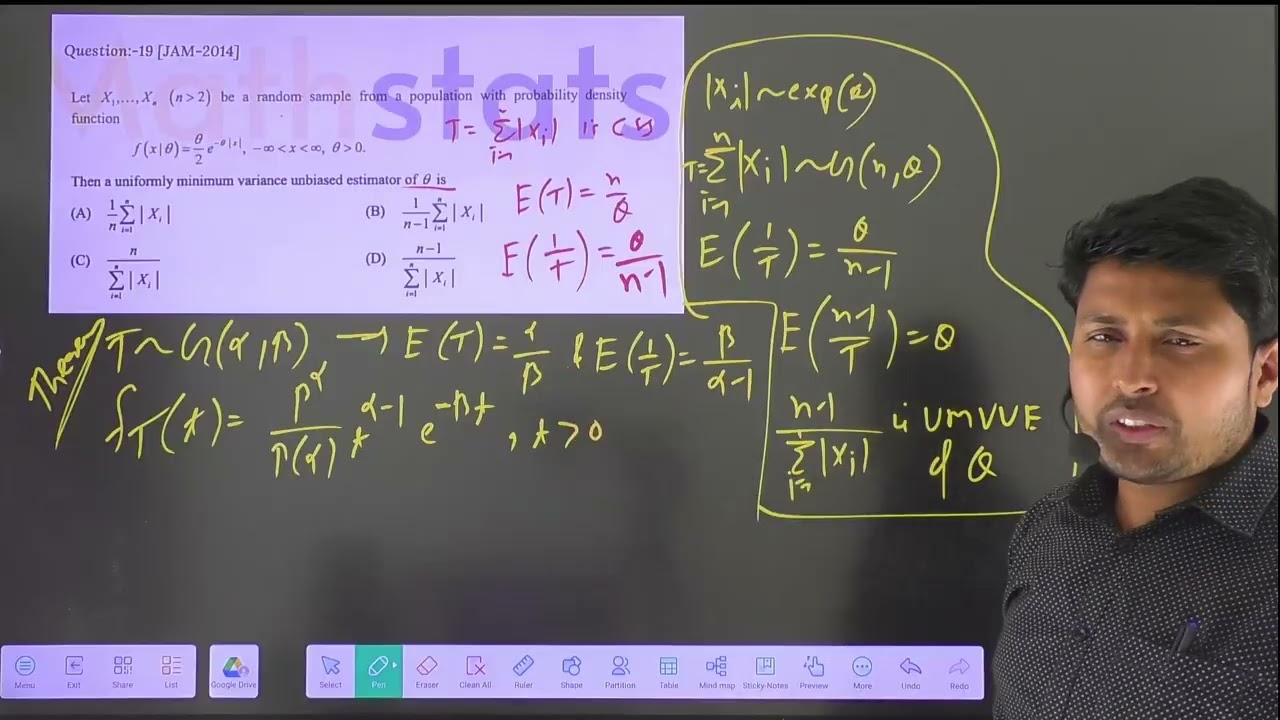 Mathstats
Question:-19 [JAM-2014]
Let X₁,...,Xₙ (n > 2) be a random sample from a population with probability density
function
f(x|θ) = θ/2 e^{-θ|x|}, -∞ < x < ∞, θ > 0.
Then a uniformly minimum variance unbiased estimator of θ is
(A) 1/n ∑_{i=1}^{n} |Xᵢ|
(B) 1/(n-1) ∑_{i=1}^{n} |Xᵢ|
(C) n / ∑_{i=1}^{n} |Xᵢ|
(D) n-1 / ∑_{i=1}^{n} |Xᵢ|
T = ∑_{i=1}^{n} |xᵢ| is CSS
E(T) = n/θ
E(1/T) = θ/(n-1)
|xᵢ| ~ exp(θ)
T = ∑_{i=1}^{n} |xᵢ| ~ G(n, θ)
E(1/T) = θ/(n-1)
E((n-1)/T) = θ
n-1 / ∑_{i=1}^{n} |xᵢ| is UMVUE
of θ
Theorem T ~ G(α, β), → E(T) = α/β & E(1/T) = β/(α-1)
f_T(t) = β^α/Γ(α) t^{α-1} e^{-βt}, t > 0
Menu
Exit
Share
List
Google Drive
Select
Pen
Eraser
Clean All
Ruler
Shape
Partition
Table
Mind map
Sticky-Notes
Preview
More
Undo
Redo